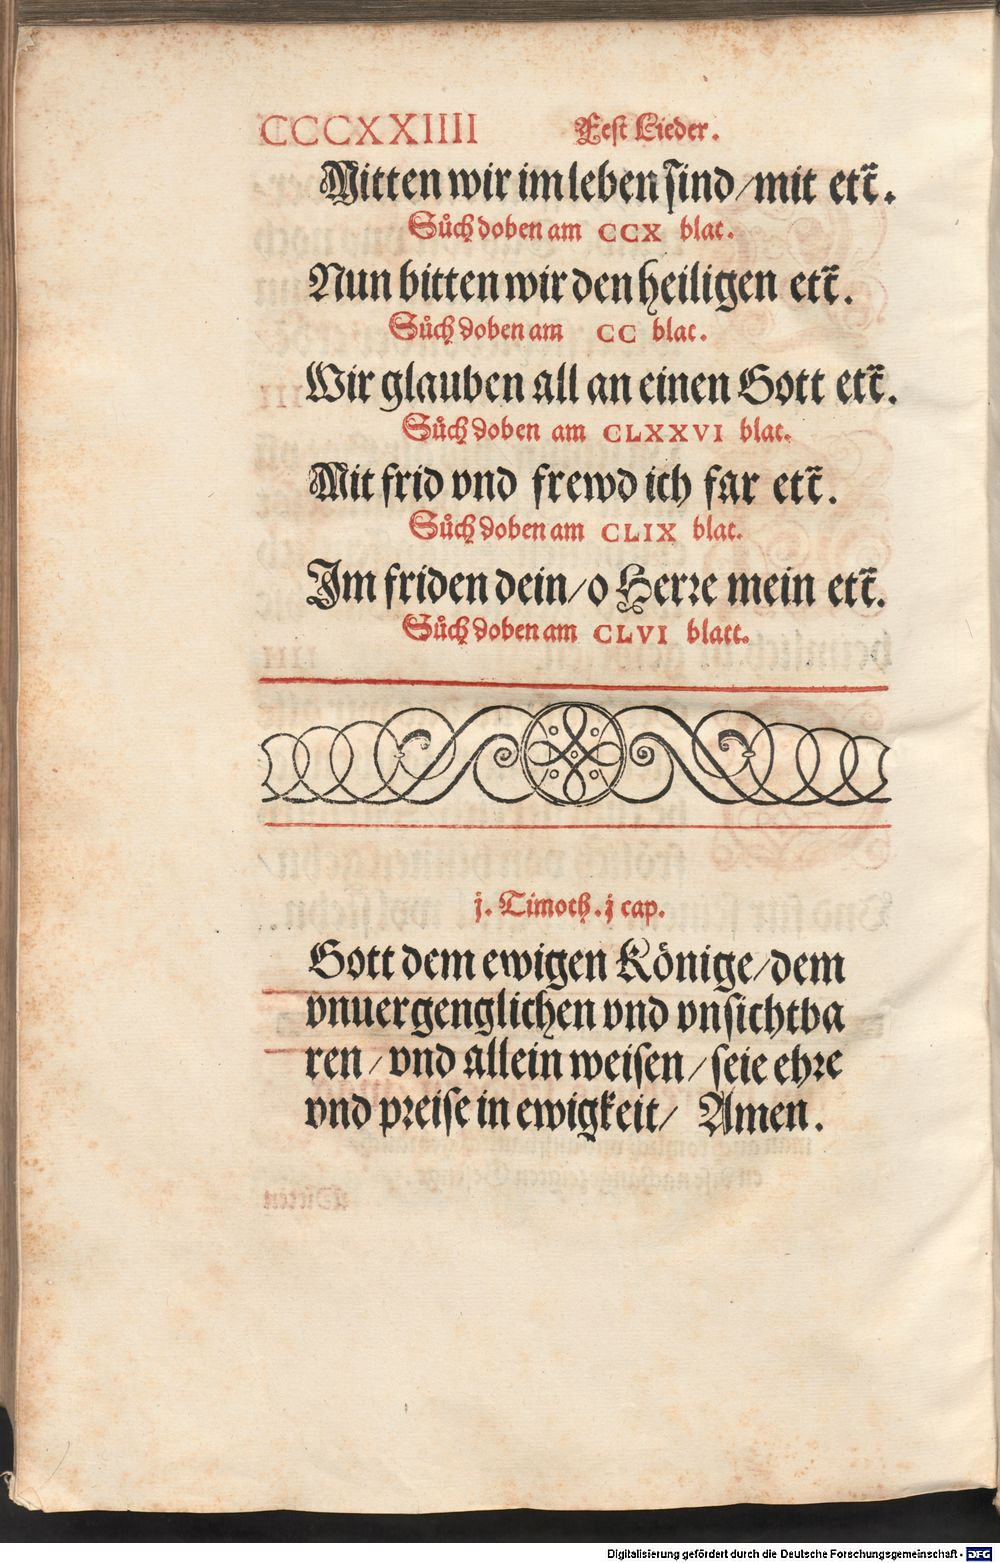 CCCXXIIII Fest Lieder.
Mitten wir im leben sind/mit etc̃.
Sůch doben am CCX blat.
Nun bitten wir den heiligen etc̃.
Sůch doben am CC blat.
Wir glauben all an einen Gott etc̃.
Sůch doben am CLXXVI blat.
Mit frid vnd frewd ich far etc̃.
Sůch doben am CLIX blat.
Im friden dein/o Herꝛe mein etc̃.
Sůch doben am CLVI blatt.
j. Timoth. j cap.
Gott dem ewigen Könige/dem
vnuergenglichen vnd vnsichtba
ren/vnd allein weisen/seie ehꝛe
vnd pꝛeise in ewigkeit/ Amen.
Digitalisierung gefördert durch die Deutsche Forschungsgemeinschaft - DFG